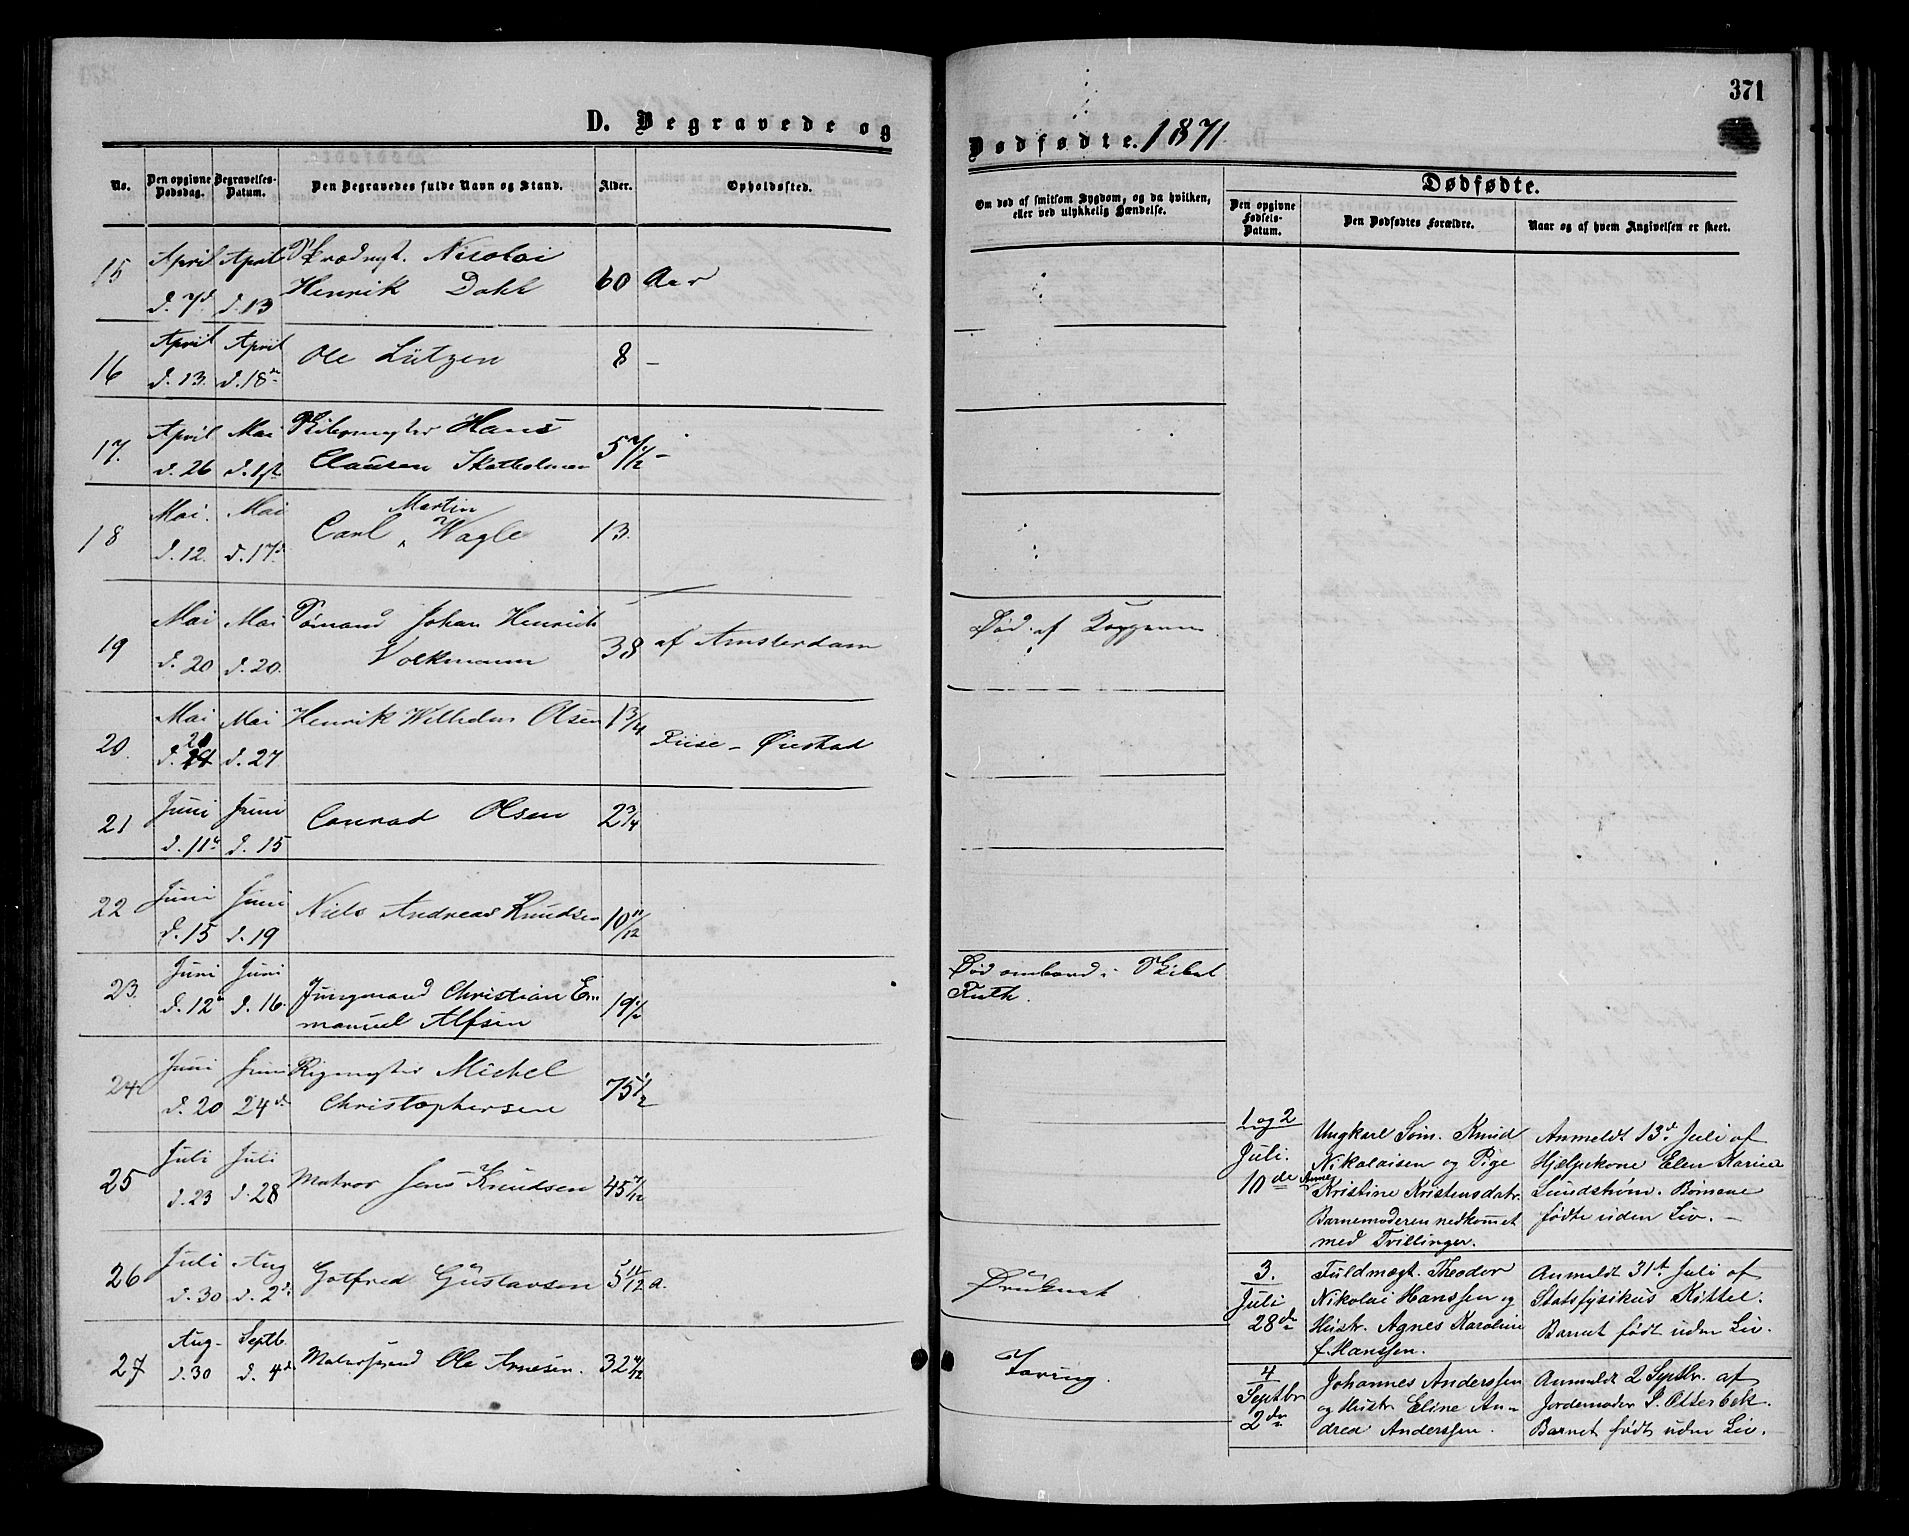 371
D. Begravede og
Dødfødte. 1871.
No.
Den opgivne Dødsdag.
Begravelses-Datum.
Den Begravedes fulde Navn og Stand.
Alder.
Opholdssted.
Om død af smitsom Sygdom, og da hvilken,
eller ved ulykkelig Hændelse.
Dødfødte.
Den opgivne Fødsels-Datum.
Den Dødfødtes Forældre.
Naar og af hvem Angivelsen er skeet.
15 April April Nicolai
d. 7d. d. 13 Henrik Dahl 60 Aar
16 April April Ole Lützen 8 -
d. 13. d. 18de
17. April Mai Skibsmygler Hans
d. 26 d. 1ste Clausen 5 7/12 -
18 Mai. Mai Carl Martin Wagle 13.
d. 12. d. 17d.
19 Mai Mai Sømand Johan Henrich
d. 20 d. 20. Volkmann 38 af Amsterdam
Død af Kopperne
20. Mai Mai Henrik Wilhelm Olsen 1 3/4
d. 20 d. 27 Riise - Øiestad
21 Juni Juni Conrad Olsen 2 3/4
d. 11te d. 15
22 Juni Juni Niels Andreas Knudsen 10 11/12
d. 15 d. 19
23. Juni Juni Jungmand Christian Em-
d. 12te d. 16. manuel Alfsen 19 1/2
Død ombord i Skibet
Ruth.
24 Juni Juni Rigmyster Michel
d. 20 24d. Christophersen 75 1/2
25 Juli Juli Matros Jens Knudsen 45 7/12
d. 23 d. 28
26 Juli Aug Gotfred Gustavsen 5 11/12 a.
d. 30 d. 2d.
Druknet
27 Aug. Septb. Ole Arnesen. 32 4/12
d. 30 d. 4d.
Tæring.
1 og 2
Juli.
10de
Ungkarl Søm. Knud
Nikolaisen og Pige Anne
Kristine Kristensdatr.
Barnemoderen nedkomet
med Tvillinger.
Anmeldt 13d. Juli af
Hjælpekone Elen Karine
Lundstrøm. Børnene
fødte uden Liv. -
3.
Juli
28de
Fuldmægt. Theodor
Nikolai Hanssen og
Hustr. Agnes Karoline
f. Hanssen.
Anmeldt 31te Juli af
Statsfysikus Kittel.
Barnet født uden Liv.
4
Septbr
2den
Johannes Anderssen
og Hustr. Eline An-
drea Anderssen.
Anmeldt 2 Septbr. af
Jordemoder P. Otterbek.
Barnet født uden Liv.